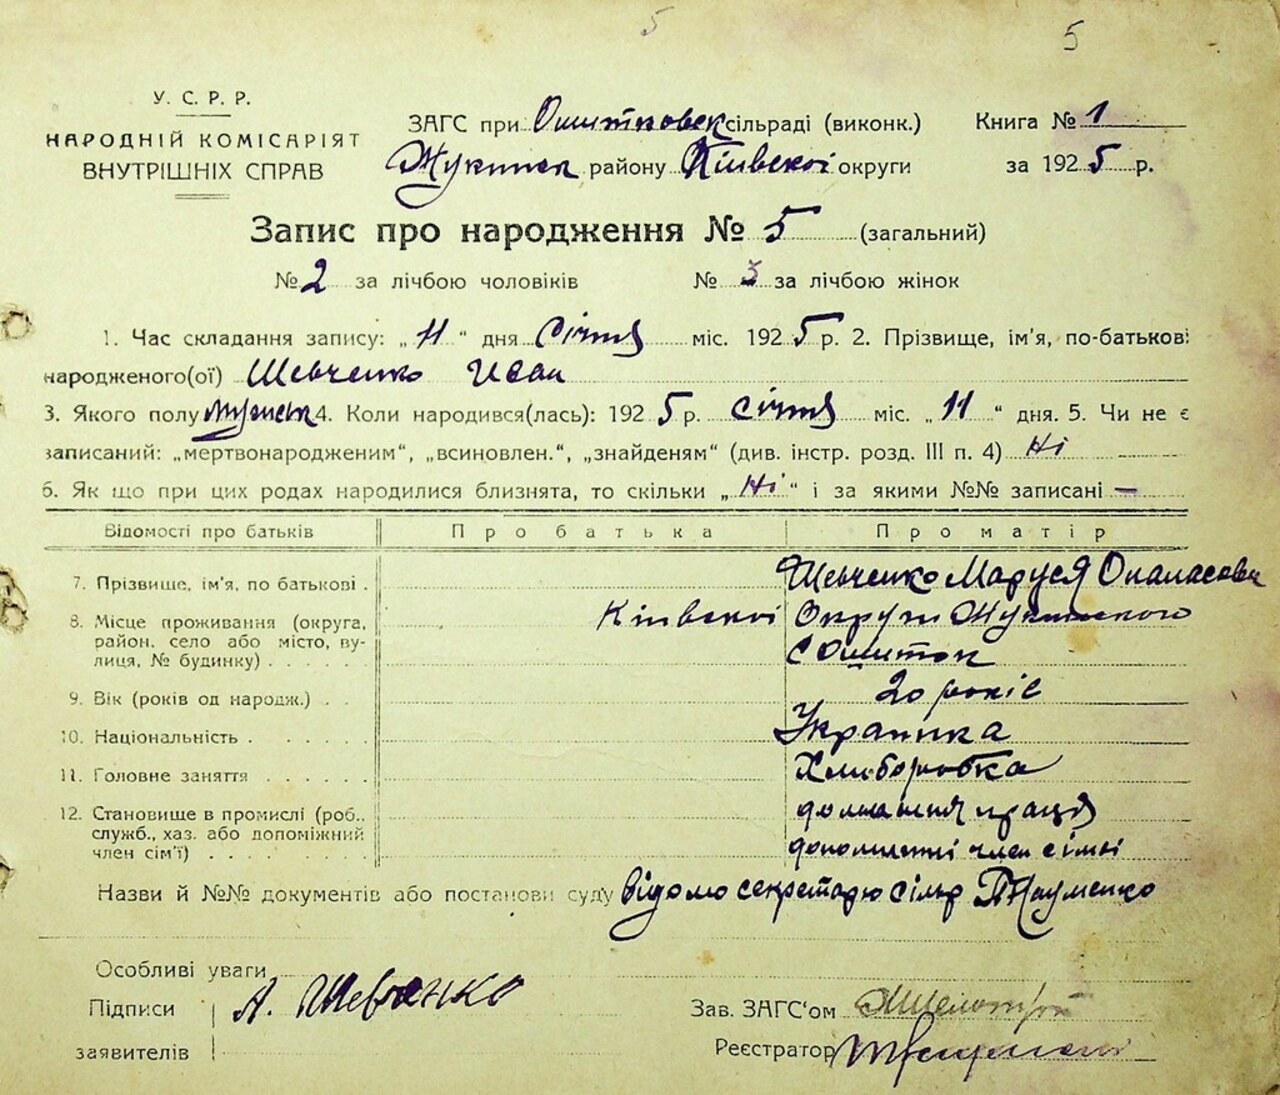 5 5
У. С. Р. Р.
НАРОДНІЙ КОМІСАРІЯТ
ВНУТРІШНІХ СПРАВ
ЗАГС при Ошитковск сільраді (виконк.)
Жукинск району Київскоі округи
Книга № 1
за 1925 р.
Запис про народження № 5 (загальний)
№ 2 за лічбою чоловіків № 3 за лічбою жінок
1. Час складання запису: „11“ дня Січня міс. 1925 р. 2. Прізвище, ім'я, по-батькові
народженого(ої) Шевченко Иван
3. Якого полу мужеськ 4. Коли народився(лась): 1925 р. січня міс. „11“ дня. 5. Чи не є
записаний: „мертвонародженим“, „всиновлен.“, „знайденям“ (див. інстр. розд. III п. 4) Ні
6. Як що при цих родах народилися близнята, то скільки „Ні“ і за якими №№ записані —
Відомості про батьків Про батька Про матір
7. Прізвище, ім'я, по батькові . Шевченко Маруся Опанасовн
8. Місце проживання (округа, Київскоі Округи Жукинского
район, село або місто, ву-
лиця, № будинку) . . . . . с Ошиток
9. Вік (років од народж.) . . 20 років
10. Національність . . . . . . Украінка
11. Головне заняття . . . . . . Хлиборобка
12. Становище в промислі (роб., домашня праця
служб., хаз. або допоміжний
член сім'ї) . . . . . . . член сімьі
Назви й №№ документів або постанови суду Відомо секретарю сільр Науменко
Особливі уваги
Підписи А. Шевченко
заявителів
Зав. ЗАГС'ом
Реєстратор